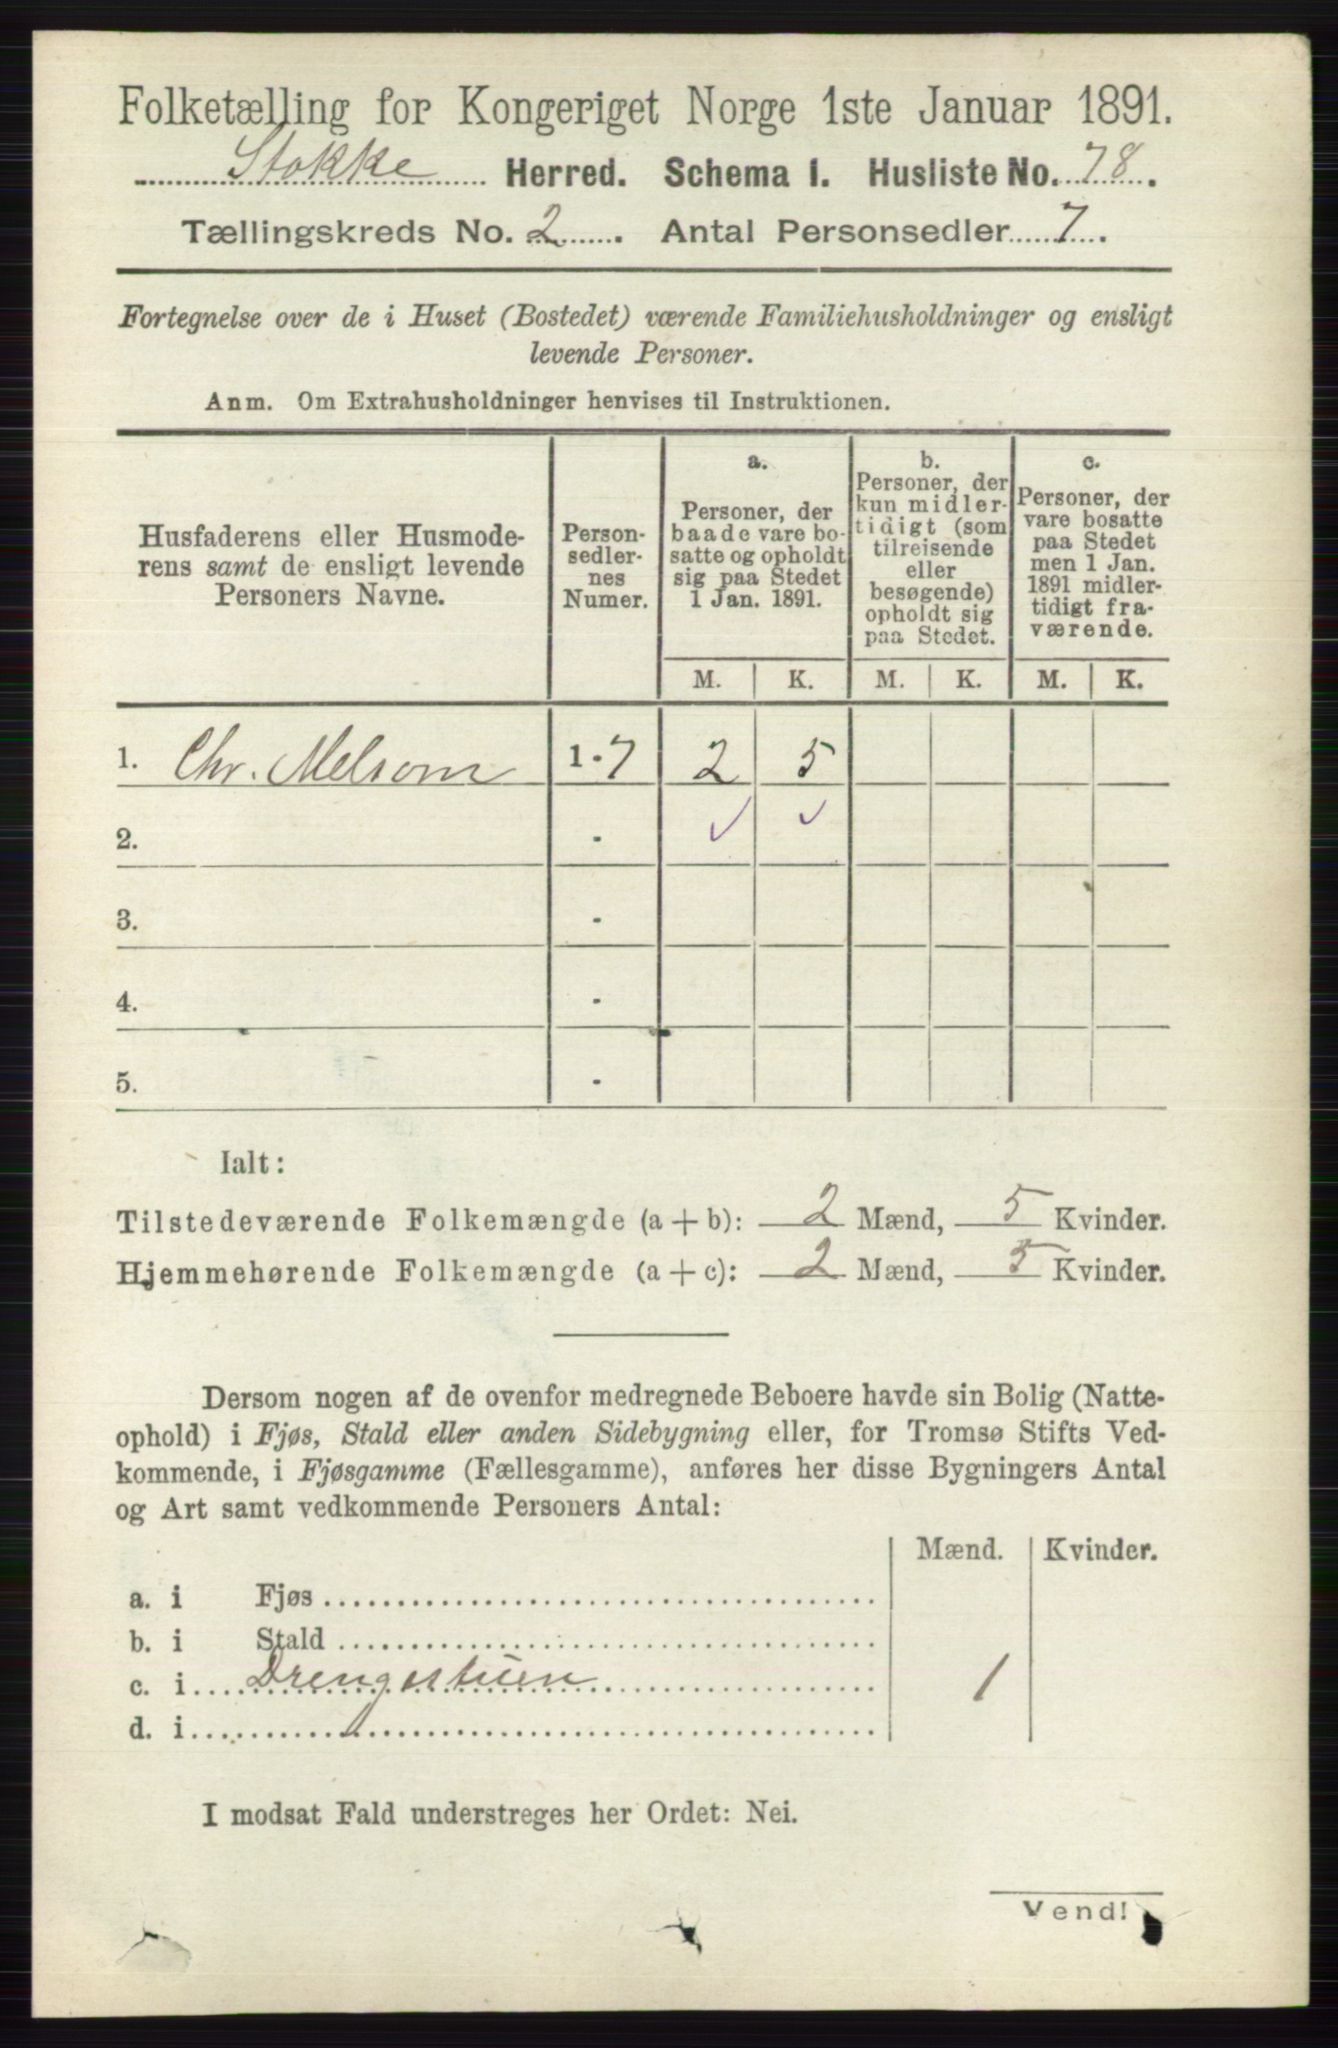 Folketælling for Kongeriget Norge 1ste Januar 1891.
Stokke Herred. Schema I. Husliste No. 78.
Tællingskreds No. 2. Antal Personsedler 7.
Fortegnelse over de i Huset (Bostedet) værende Familiehusholdninger og ensligt
levende Personer.
Anm. Om Extrahusholdninger henvises til Instruktionen.
Husfaderens eller Husmode-
rens samt de ensligt levende
Personers Navne.
Person-
sedler-
nes
Numer.
a.
Personer, der
baade vare bo-
satte og opholdt
sig paa Stedet
1 Jan. 1891.
b.
Personer, der
kun midler-
tidigt (som
tilreisende
eller
besøgende)
opholdt sig
paa Stedet.
c.
Personer, der
vare bosatte
paa Stedet
men 1 Jan.
1891 midler-
tidigt fra-
værende.
M. K. M. K. M. K.
1. Chr. Melsom 1-7 2 5
2. - ✓ ✓
3. -
4. -
5. -
Ialt:
Tilstedeværende Folkemængde (a + b): 2 Mænd, 5 Kvinder.
Hjemmehørende Folkemængde (a + c): 2 Mænd, 5 Kvinder.
Dersom nogen af de ovenfor medregnede Beboere havde sin Bolig (Natte-
ophold) i Fjøs, Stald eller anden Sidebygning eller, for Tromsø Stifts Ved-
kommende, i Fjøsgamme (Fællesgamme), anføres her disse Bygningers Antal
og Art samt vedkommende Personers Antal:
Mænd. Kvinder.
a. i Fjøs
b. i Stald
c. i Drengestuen 1
d. i
I modsat Fald understreges her Ordet: Nei.
Vend!